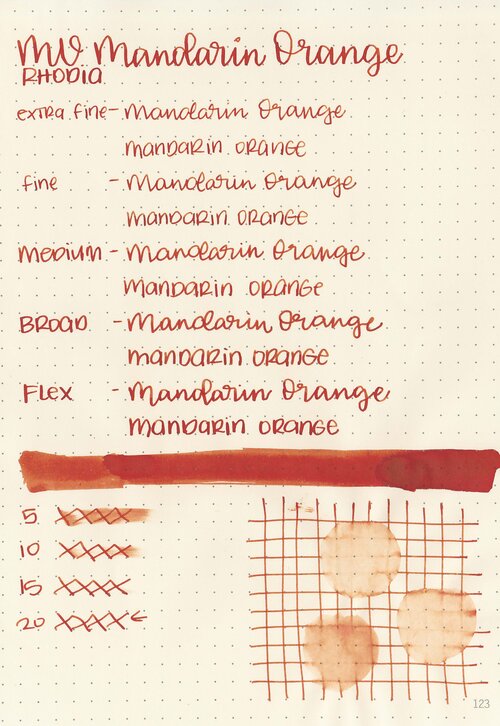 MV Mandarin Orange
RHODIA
extra fine - Mandarin Orange
mandarin orange
fine - Mandarin Orange
mandarin orange
medium - Mandarin Orange
mandarin orange
Broad - Mandarin Orange
mandarin orange
Flex - Mandarin Orange
mandarin orange
5 XXXX
10 XXXX
15 XXXX
20 XXXX ←
123